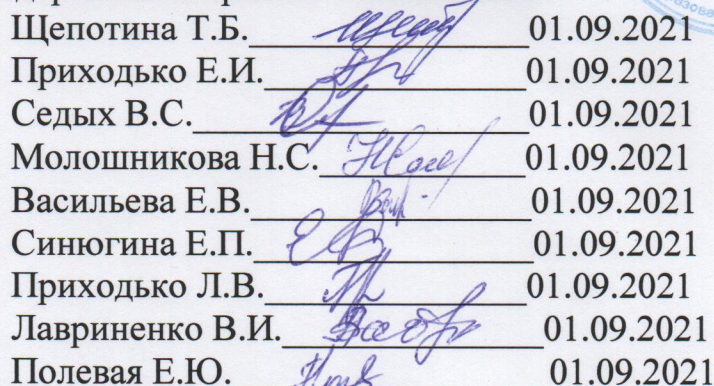 Щепотина Т.Б. 01.09.2021
Приходько Е.И. 01.09.2021
Седых В.С. 01.09.2021
Молошникова Н.С. 01.09.2021
Васильева Е.В. 01.09.2021
Синюгина Е.П. 01.09.2021
Приходько Л.В. 01.09.2021
Лавриненко В.И. 01.09.2021
Полевая Е.Ю. 01.09.2021